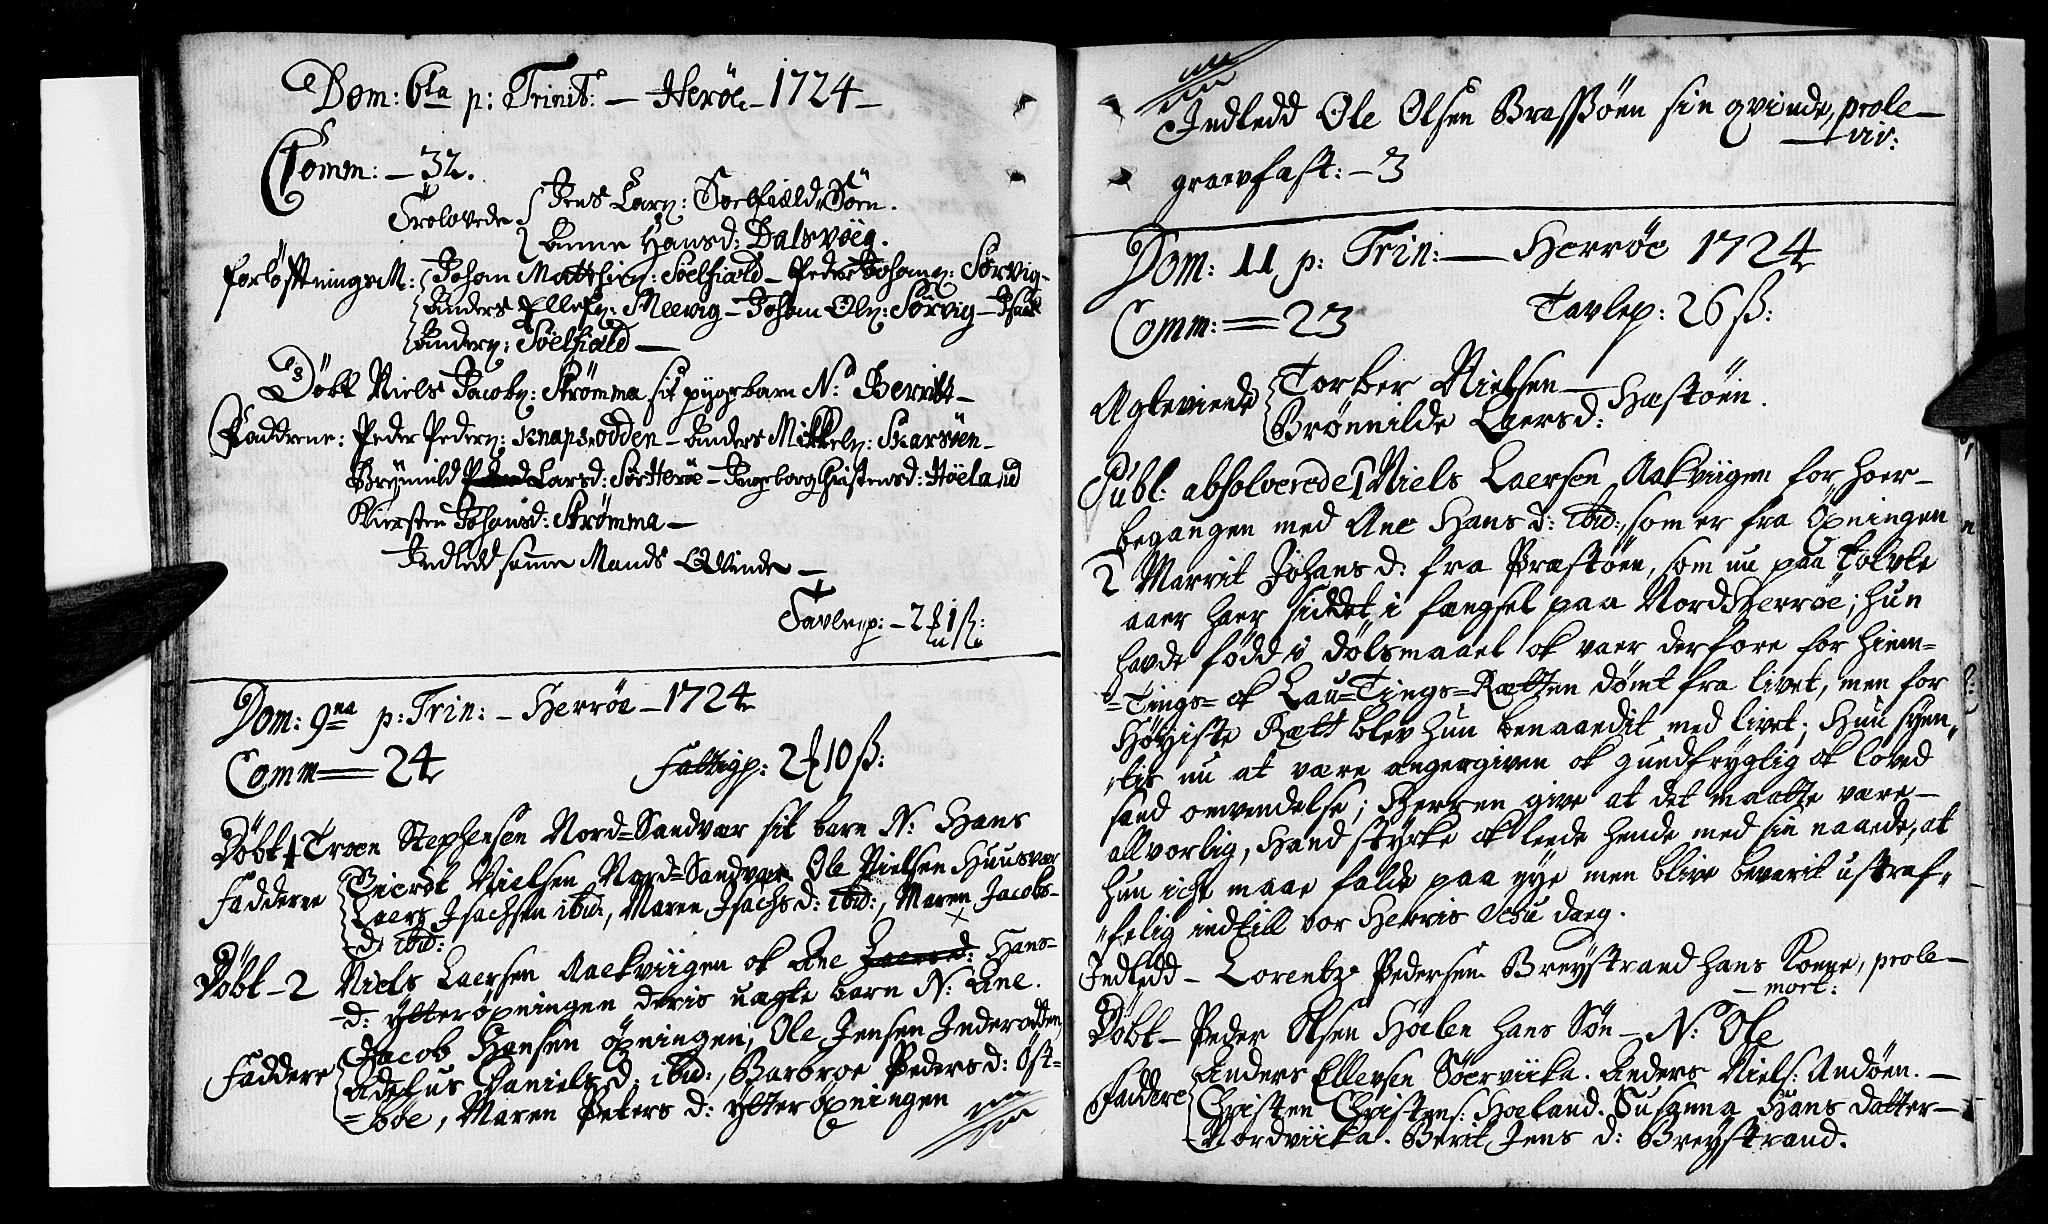 Dom: 6ta p: Trinit: – Herøe – 1724 –
Comm: – 32.
Trolovede { Jens Lars: Soelfiæld, Søen.
Anne Hansd: Dalsvoeg.
forløftningsM: { Johan Matthis: Søelfiæld – Peder Johans: Sørvig –
Anders Ellefs: Meevig – Johan Ols: Sørvig – Isaac
Anders: Søelfiæld –
Døbt Niels Jacobs: Strømma sit pygebarn N: Berritt –
Faddrene: Peder Peders: Knaps-odden – Anders Mikkels: Skarsøen –
Brynnild Larsd: Sør Herøe – Ingeborg Christensd: Høeland
Kiersten Johansd: Strømma –
Indledd samme Mands Qvinde –
Tavlep: – 2 ƒ 1 ß:
Dom: 9na p: Trin: – Herrøe – 1724
Comm = 24 Fattigp: 2 ƒ 10 ß:
Døbt 1 Troen Stephensen Nord=Sandvær sit barn N: Hans
Fadderne { Sierdt Nielsen Nord=Sandvær Ole Nielsen Huusvær
Laers Isachsen ibid:, Maren Isachs d: ibid:, Maren Jacobs-
d: ibid:
Døbt – 2 Niels Laersen Aakviigen ok Ane Laersd: Hans=
d: ytterøpningen deris uægte barn N: Ane.
Faddere { Jacob Hansen øpningen, Ole Jensen Inderodden
Adelus Daniels d: ibid:, Barbroe Peders d: Øst=
=boe, Maren Peters d: ytterøpningen
Indledd Ole Olsen Brassøen sin qvinde, prole –
– viv:
graevfast: – 3
Dom: 11 p: Trin: — Herrøe 1724
Comm: = 23 Tavlep: 26 ß:
Ægteviede { Torber Nielsen – Hæstøen.
Brønnilde Laersd:
Publ: absolverede 1 Niels Laersen Aakviigen for hoer –
begangen med Ane Hans d: ibid:, som er fra Øpningen
2 Marrit Johans d: fra Præstøen, som nu paa tolvte
aaer haer siddet i fængsel paa Nord Herrøe; hun
havde fødd i dølsmaael ok vaer derfore for Hiem=
=Tings= ok Lau=Tings=Rætten dømt fra livet, men for
Høyiste Rætt blev hun benaaedit med livet; Hun syen„
„tis nu at være angergiven ok gundfrygtig ok loved
sand omvendelse; Herren give at det maatte være –
allvorlig, Hand styrke ok leede hende med sin naaede, at
hun icke maae falde paa nye men blive bevarit ustraf„
„felig indtill vor Herris Jesu daeg.
Indledd – Lorentz Pedersen Breystrand hans Koene, prole –
– mort:
Døbt – Peder Olsen Høelen hans Søn – N: Ole
Faddere { Anders Ellevsen Søerviika. Anders Niels: Andøen. –
Christen Christens: Hoeland. Susanna Hans datter –
Nordviika. Berit Jens d: Breystrand.